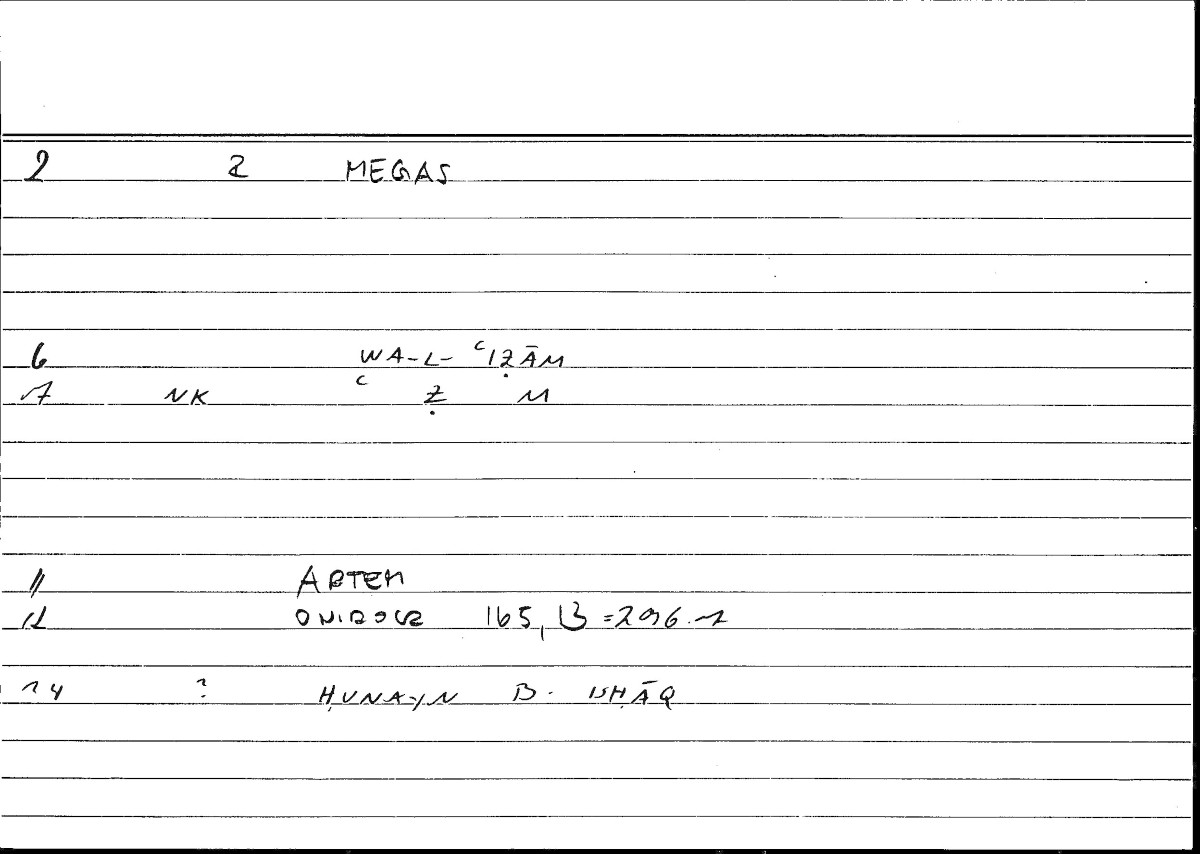 2 2 MEGAS
6 WA-L- ʿIẒĀM
7 NK ʿ Ẓ M
11 ARTEM
12 ONIROCR 165, 13 = 296.1
14 ? ḤUNAYN B. ISḤĀQ